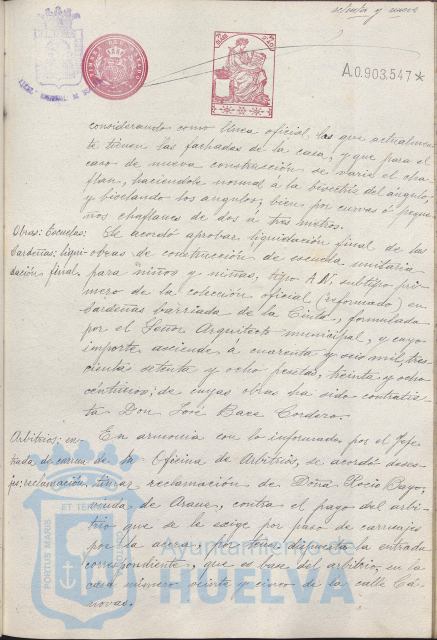 setenta y nueve
A.0.903.547*
considerando como línea oficial las que actualmen-
te tienen las fachadas de la casa, y que para el
caso de nueva construcción se varíe el cha-
flan, haciendole normal á la bisectriz del ángulo,
y biselando los angulos, bien por curvas ó peque-
ños chaflanes de dos á tres metros.
Obras: Escuelas:
Cardeñas: liqui-
dación final.
Se acordó aprobar liquidación final de las
obras de construcción de escuela unitaria
para niños y niñas, tipo A.N. subtipo pri-
mero de la colección oficial (reformado) en
Cardeñas barriada de la Cinta, formulada
por el Señor Arquitecto municipal, y cuyo
importe asciende á cuarenta y seis mil, tres-
cientas setenta y ocho pesetas, treinta y ocho
céntimos; de cuyas obras ha sido contratis-
ta Don José Bace Cordero.
Arbitrios: en-
trada de carrua-
jes: reclamación.
En armonía con lo informado por el Jefe
de la Oficina de Arbitrios, se acordó deses-
timar reclamación de Doña Rocío Bayo,
viuda de Araus, contra el pago del arbi-
trio que se le exige por paso de carruajes
por la acera, por tener dispuesta la entrada
correspondiente, que es base del arbitrio, en la
casa número veinte y cinco de la calle Cá-
novas.
PORTUS MARIS
ET TERRAE
Ayuntamiento de
HUELVA